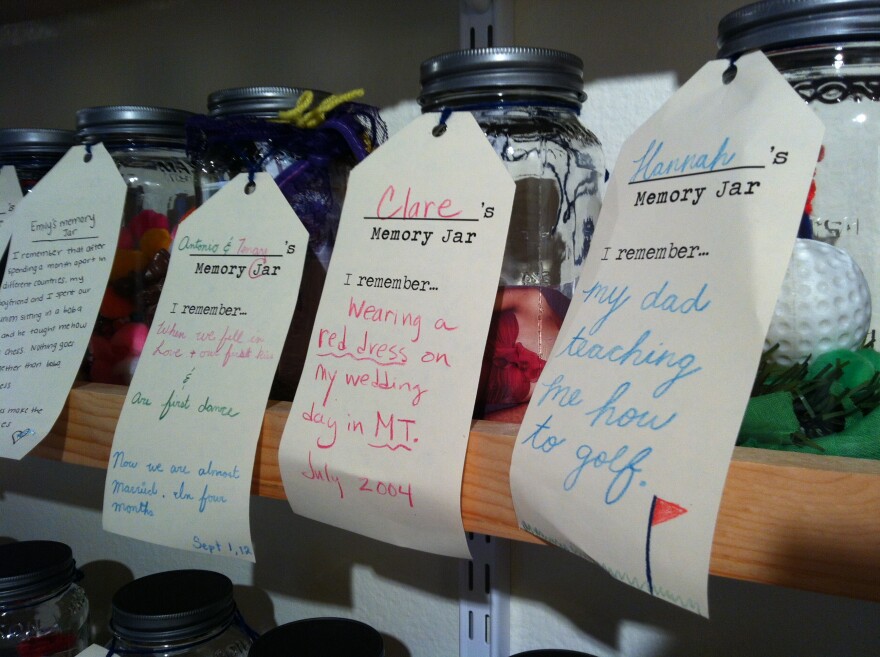 Emily's memory
Jar
I remember that after
spending a month apart in
different countries, my
boyfriend and I spent our
sitting in a boba
and he taught me how
chess. Nothing goes
together than boba
make the
Antonio & 's
Memory Jar
I remember...
When we fell in
love + our first kiss
&
Are first dance
Now we are almost
Married. In four
months
Sept 1, 12
Clare 's
Memory Jar
I remember...
Wearing a
red dress on
my wedding
day in MT.
July 2004
Hannah 's
Memory Jar
I remember...
my dad
teaching
me how
to golf.